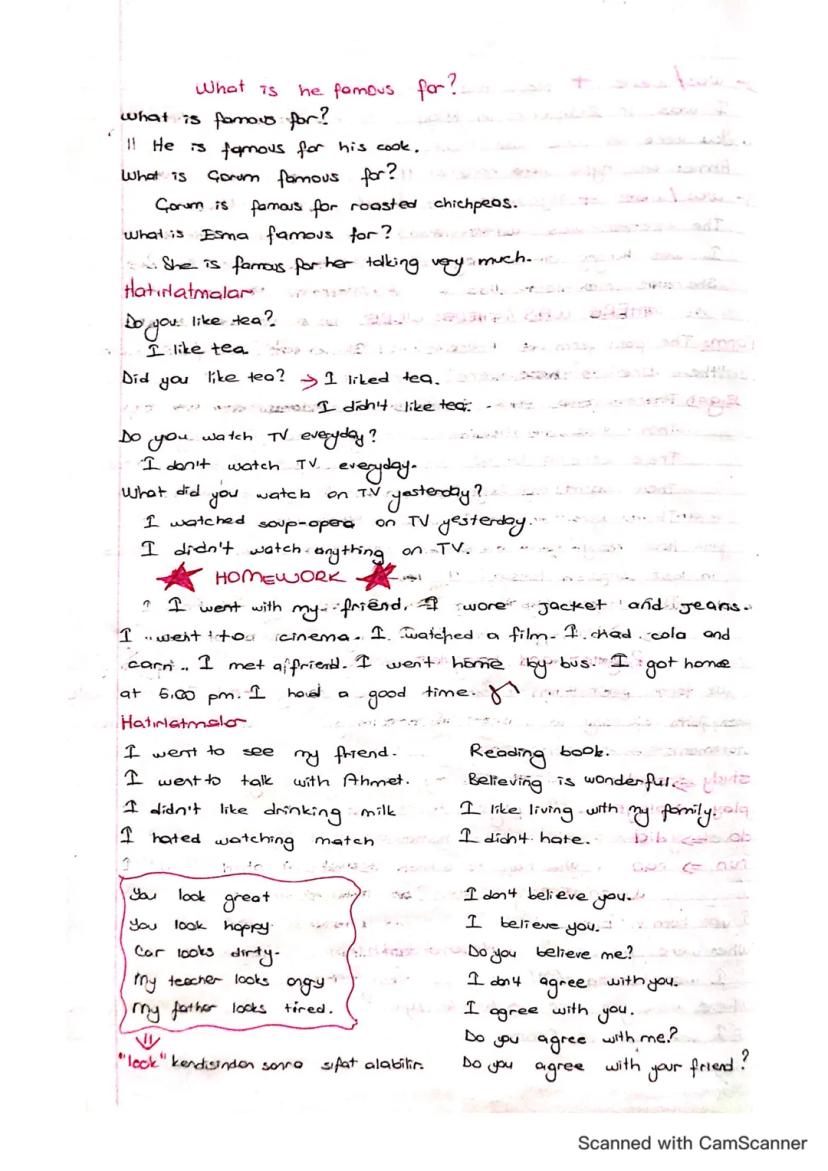 What is he famous for?
What is famous for?
!! He is famous for his cook.
What is Çorum famous for?
Çorum is famous for roasted chichpeas.
What is Esma famous for?
She is famous for her talking very much.
Hatırlatmalar
Do you like tea?
I like tea
Did you like tea? → I liked tea.
I didn't like tea.
Do you watch TV everyday?
I don't watch TV everyday.
What did you watch on TV yesterday?
I watched soup-opera on TV yesterday.
I didn't watch anything on TV.
★ HOMEWORK ★
I went with my friend. I wore jacket and jeans.
I went to cinema. I watched a film. I had cola and
corn. I met a friend. I went home by bus. I got home
at 5:00 pm. I had a good time.
Hatırlatmalar
I went to see my friend.
I went to talk with Ahmet.
I didn't like drinking milk
I hated watching match
Reading book.
Believing is wonderful.
I like living with my family.
I didn't hate.
You look great
You look happy
Car looks dirty.
My teacher looks angy
My father looks tired.
"look" kendisinden sonra sıfat alabilir.
I don't believe you.
I believe you.
Do you believe me?
I don't agree with you.
I agree with you.
Do you agree with me?
Do you agree with your friend?
Scanned with CamScanner